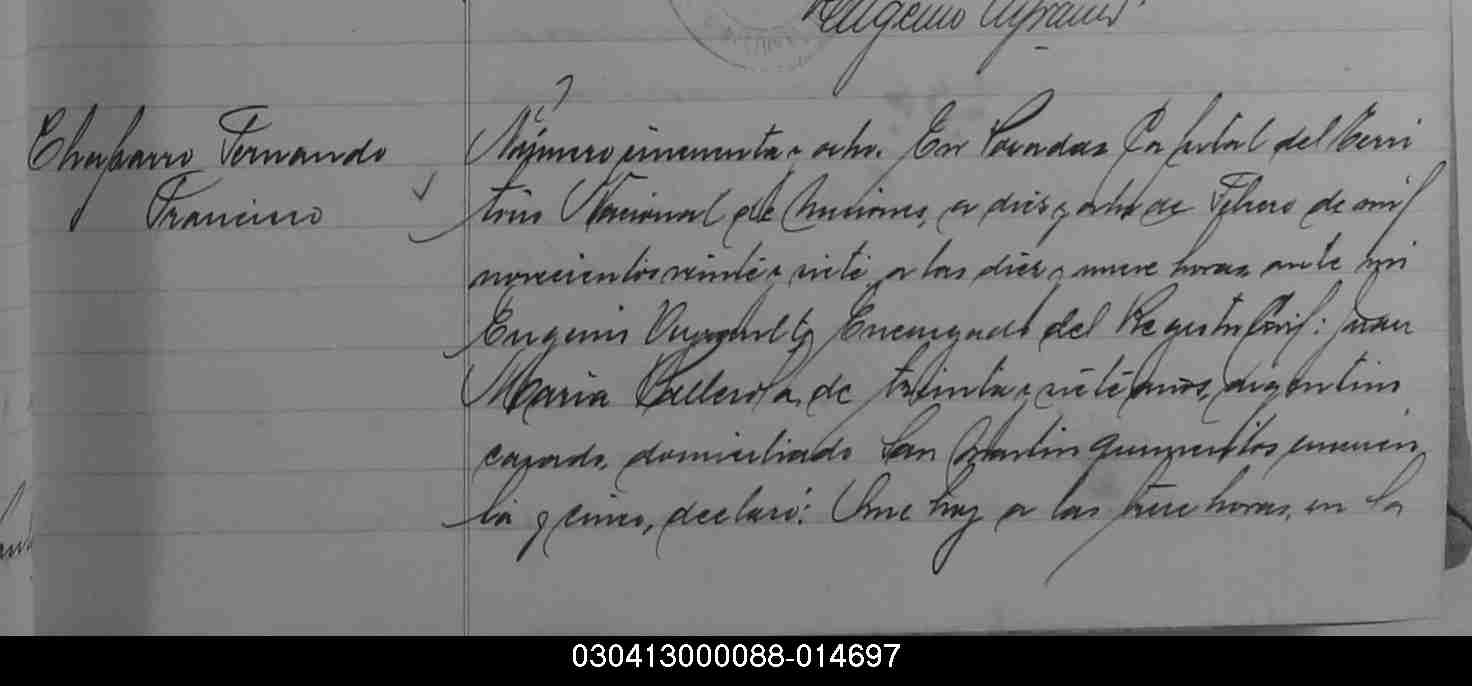 Eugenio
Chaparro Fernando
Francisco
Número cincuenta y ocho. En Posadas Capital del Terri
torio Nacional de Misiones, a diez y ocho de Febrero de mil
novecientos veinte y siete a las diez y nueve horas, ante mi
Eugenio Encargado del Registro Civil: Juan
Maria de treinta y siete años, argentino
casado, domiciliado San Martin quinientos cincuen
ta y cinco, declaró: Que hoy a las trece horas, en la
030413000088-014697